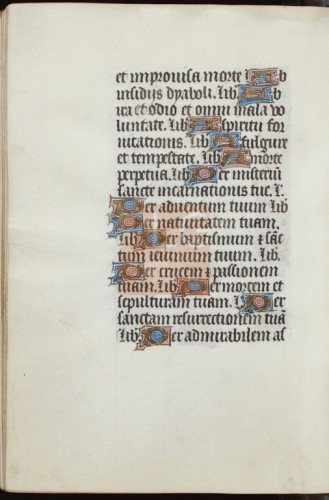 et improuisa morte Ab
insidijs dyaboli. lib Ab
ira et odio et omni mala vo
luntate. lib A spiritu for
nicationis. lib A fulgure
et tempestate. lib A morte
perpetua. lib Per misteriū
sancte incarnationis tue. l.
Per aduentum tuum lib
Per natiuitatem tuam.
lib. Per baptismum ⁊ sāc
tum ieiunium tuum. lib.
Per crucem ⁊ passionem
tuam. lib. Per mortem et
sepulturam tuam. l. Per
sanctam resurrectionem tuā
lib Per admirabilem as